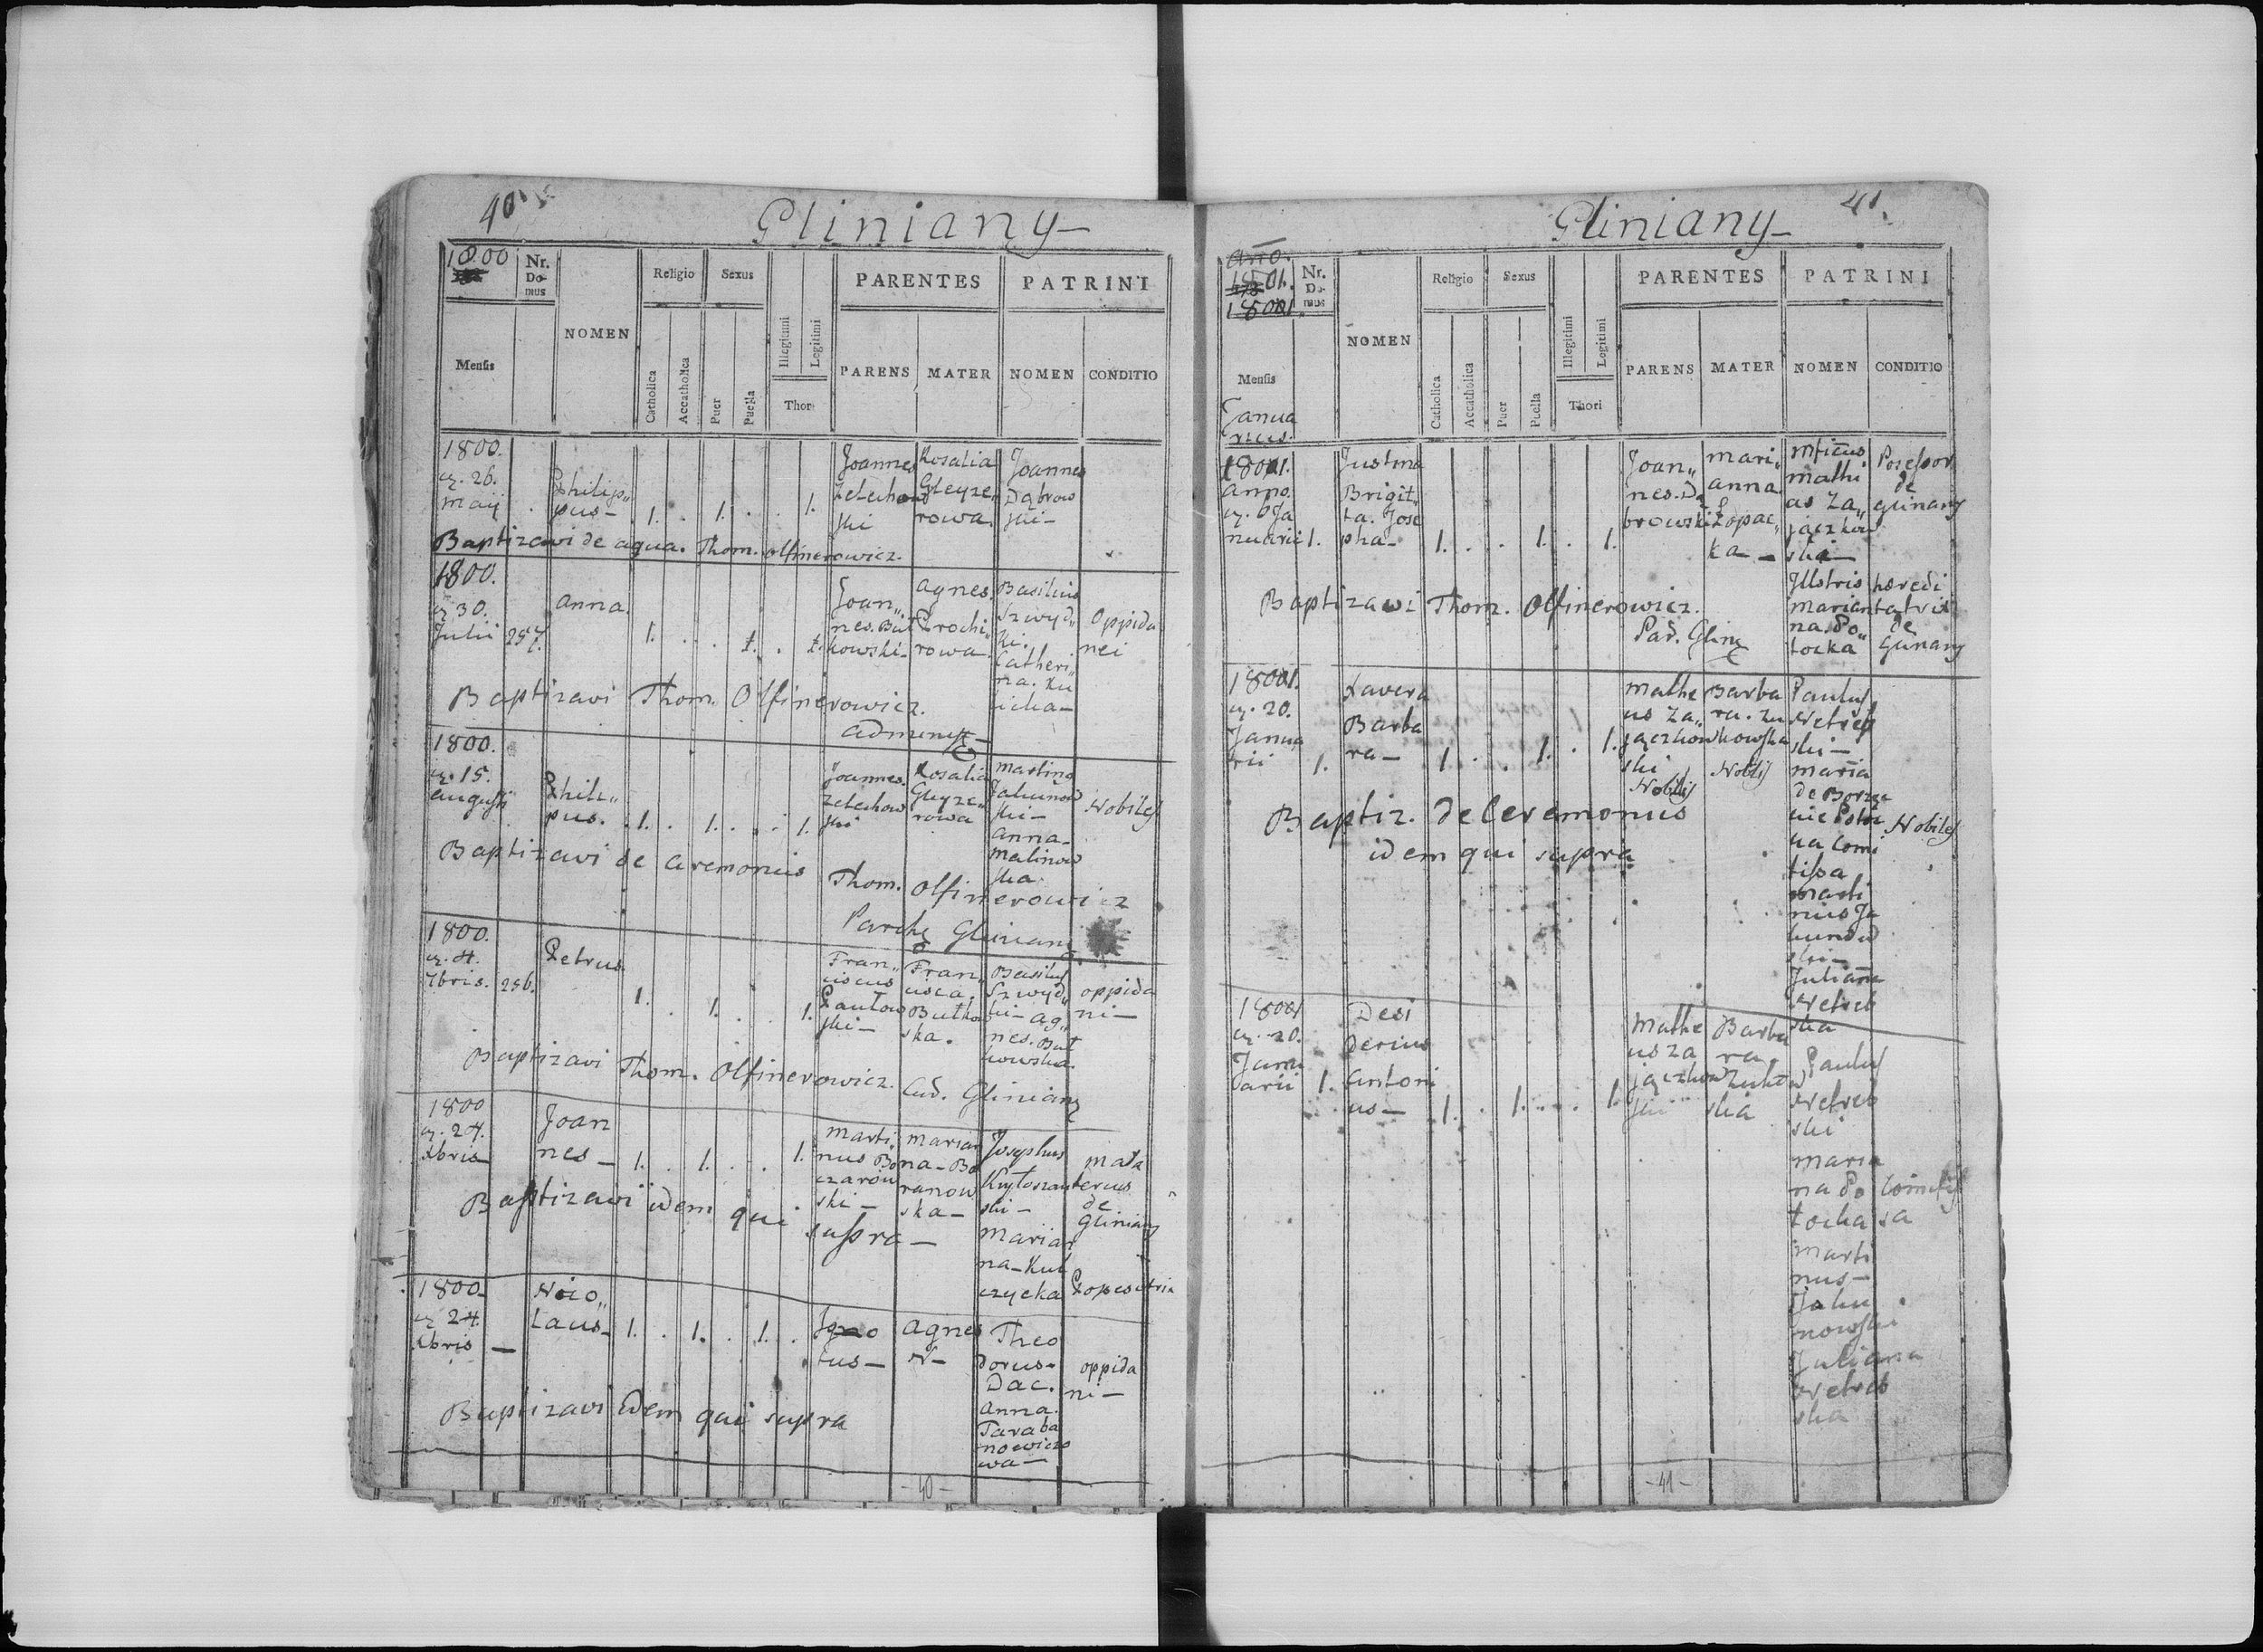 40
Gliniany
1800
Nr. Domus
NOMEN
Religio
Sexus
PARENTES
PATRINI
Mensis
Catholica
Accatholica
Puer
Puella
Illegitimi
Legitimi
Thori
PARENS
MATER
NOMEN
CONDITIO
1800.
26.
Maij
Philip„
pus –
1. 1. 1.
Joannes
Zelechow
ski
Rosalia
Gleyze„
rowa.
Joannes
Dąbrow
ski –
Baptizavi de aqua. Thom. Olfinerowicz.
1800.
30.
Julii
257.
Anna.
1. 1. 1.
Joan„
nes. But
kowski –
Agnes.
Prochi„
rowa
Basilius
Szwyd„
ki.
Catheri
na. Ku
licka –
Oppida
nei
Baptizavi Thom. Olfinerowicz.
Administ
1800.
15.
Augusti
Philip„
pus.
1. 1. 1.
Joannes.
Zelechow
ski
Rosalia
Gleyze„
rowa
Martino
Jakunow
ski –
Anna –
Malinow
ska.
Nobiles
Baptizavi de ceremoniis Thom. Olfinerowicz
Parch Gliniany
1800.
4.
7bris.
256.
Petrus
1. 1. 1.
Fran„
ciscus
Pautow
ski –
Fran„
cisca.
Butkow
ska.
Basilius
Szwyd„
ki – Ag„
nes. But
kowska.
oppida
ni –
Baptizavi Thom. Olfinerowicz. Cud. Gliniany
1800
24.
Xbris
Joan
nes –
1. 1. 1.
Marti„
nus Bo
czarow
ski –
Marian
na – Bo
ranow
ska –
Josephus
Krytoszan
ski –
Marian
na – Kul
czycka
Mała
terus
de
Gliniany
Baptizavi idem qui supra –
1800.
24.
Xbris –
Nico„
laus –
1. 1. 1.
Igno
tus –
Agnes
N –
Theo
dorus –
Dac.
Anna.
Taraba
nowiczo
wa –
oppida
ni –
Baptizavi idem qui supra
- 40 -
41.
Gliniany
Año.
1801.
Nr. Domus
NOMEN
Religio
Sexus
PARENTES
PATRINI
Mensis
Catholica
Accatholica
Puer
Puella
Illegitimi
Legitimi
Thori
PARENS
MATER
NOMEN
CONDITIO
Janua
rius.
1801.
Anno.
6 Ja
nuarii
1.
Justina
Brigit„
ta. Jose
pha –
1. 1. 1.
Joan„
nes. Dą
browski
Mari„
anna
Łopac„
ka –
Mficus
Mathi
as Za„
jączkow
ski –
Possessor
de
Gliniany
Jllstris
Marian
na. Po„
tocka
hæredi
tatrix
de
Gliniany
Baptizavi Thom. Olfinerowicz.
Par. Glin
1801.
20.
Janua
rii
1.
Xavera
Barba
ra –
1. 1. 1.
Mathe
us Za„
jączkow
ski
Nobilis
Barba
ra. Zu
kowska
Nobilis
Paulus
Netreb
ski –
Maria
de Borze
Comi
tissa
Marti
nus Ja
kunow
ski –
Juliana
Netreb
ska
Nobiles
Baptiz. de Ceremoniis
idem qui supra
1801
20.
Janu
arii
1.
Desi
derius
Antoni
us –
1. 1. 1.
Mathe
us Za
jączkow
ski
Barba
ra.
Zukow
ska
Paulus
Netreb
ski
Maria
na Po
tocka
Comitis
sa
Marti
nus –
Jaku
nowski
Juliana
Netreb
ska
- 41 -